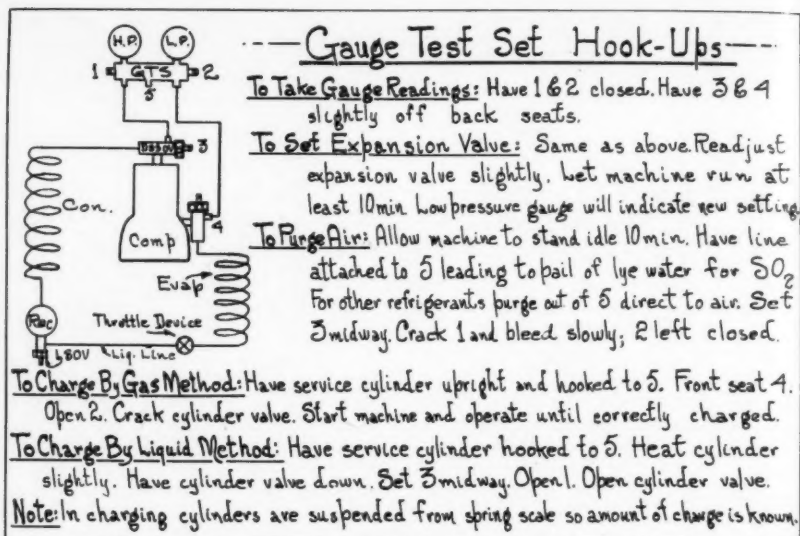 H.P. L.P.
---Gauge Test Set Hook-Ups---
1 GTS 2
5
To Take Gauge Readings: Have 1 & 2 closed. Have 3 & 4
slightly off back seats.
3
To Set Expansion Valve: Same as above. Readjust
expansion valve slightly. Let machine run at
least 10 min Low pressure gauge will indicate new setting.
Con.
4
Comp
To Purge Air: Allow machine to stand idle 10 min. Have line
attached to 5 leading to pail of lye water for SO2
For other refrigerants purge out of 5 direct to air. Set
3 midway. Crack 1 and bleed slowly; 2 left closed.
Evap
Throttle Device
Rec
Liq. Line
To Charge By Gas Method: Have service cylinder upright and hooked to 5. Front seat 4.
Open 2. Crack cylinder valve. Start machine and operate until correctly charged.
To Charge By Liquid Method: Have service cylinder hooked to 5. Heat cylinder
slightly. Have cylinder valve down. Set 3 midway. Open 1. Open cylinder valve.
Note: In charging cylinders are suspended from spring scale so amount of charge is known.